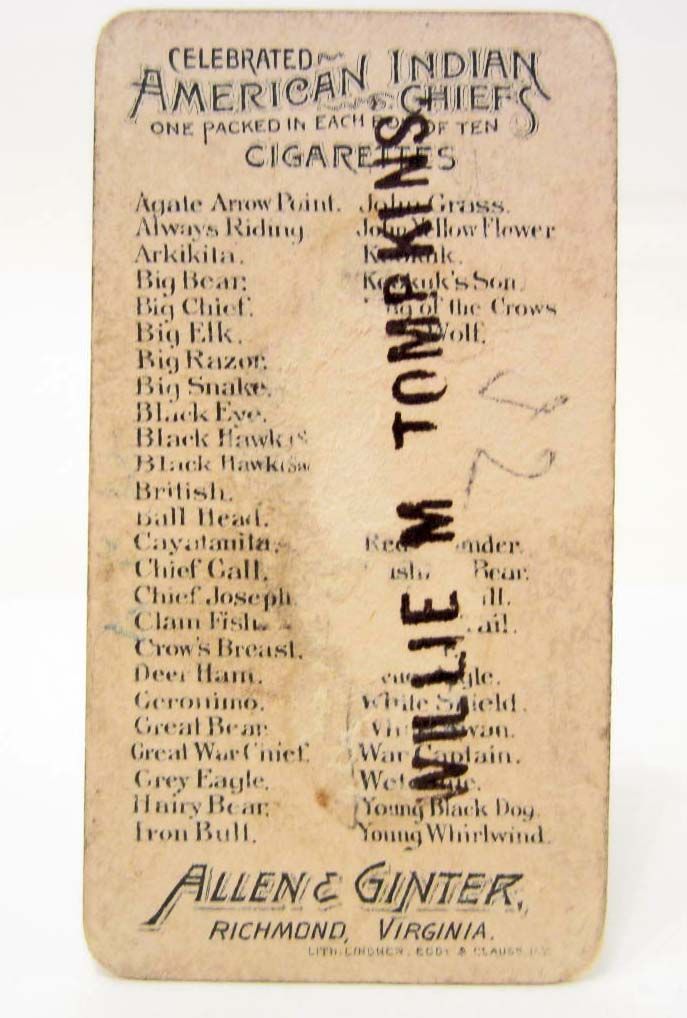 CELEBRATED
AMERICAN INDIAN
CHIEFS
ONE PACKED IN EACH BOX OF TEN
CIGARETTES
Agate Arrow Point.
Always Riding
Arkikita.
Big Bear.
Big Chief.
Big Elk.
Big Razor.
Big Snake.
Black Eye.
Black Hawk
Black Hawk
British.
Bull Head.
Cayatanita.
Chief Gall.
Chief Joseph.
Clam Fish.
Crow's Breast.
Deer Ham.
Geronimo.
Great Bear.
Great War Chief.
Grey Eagle.
Hairy Bear.
Iron Bull.
John Grass.
John Yellow Flower
Keokuk.
Keokuk's Son.
of the Crows
Wolf.
Bear.
White Shield.
War Captain.
Young Black Dog.
Young Whirlwind.
WILLIE M TOMPKINS
ALLEN & GINTER,
RICHMOND, VIRGINIA.
LITH. LINDNER, EDDY & CLAUSS, N.Y.